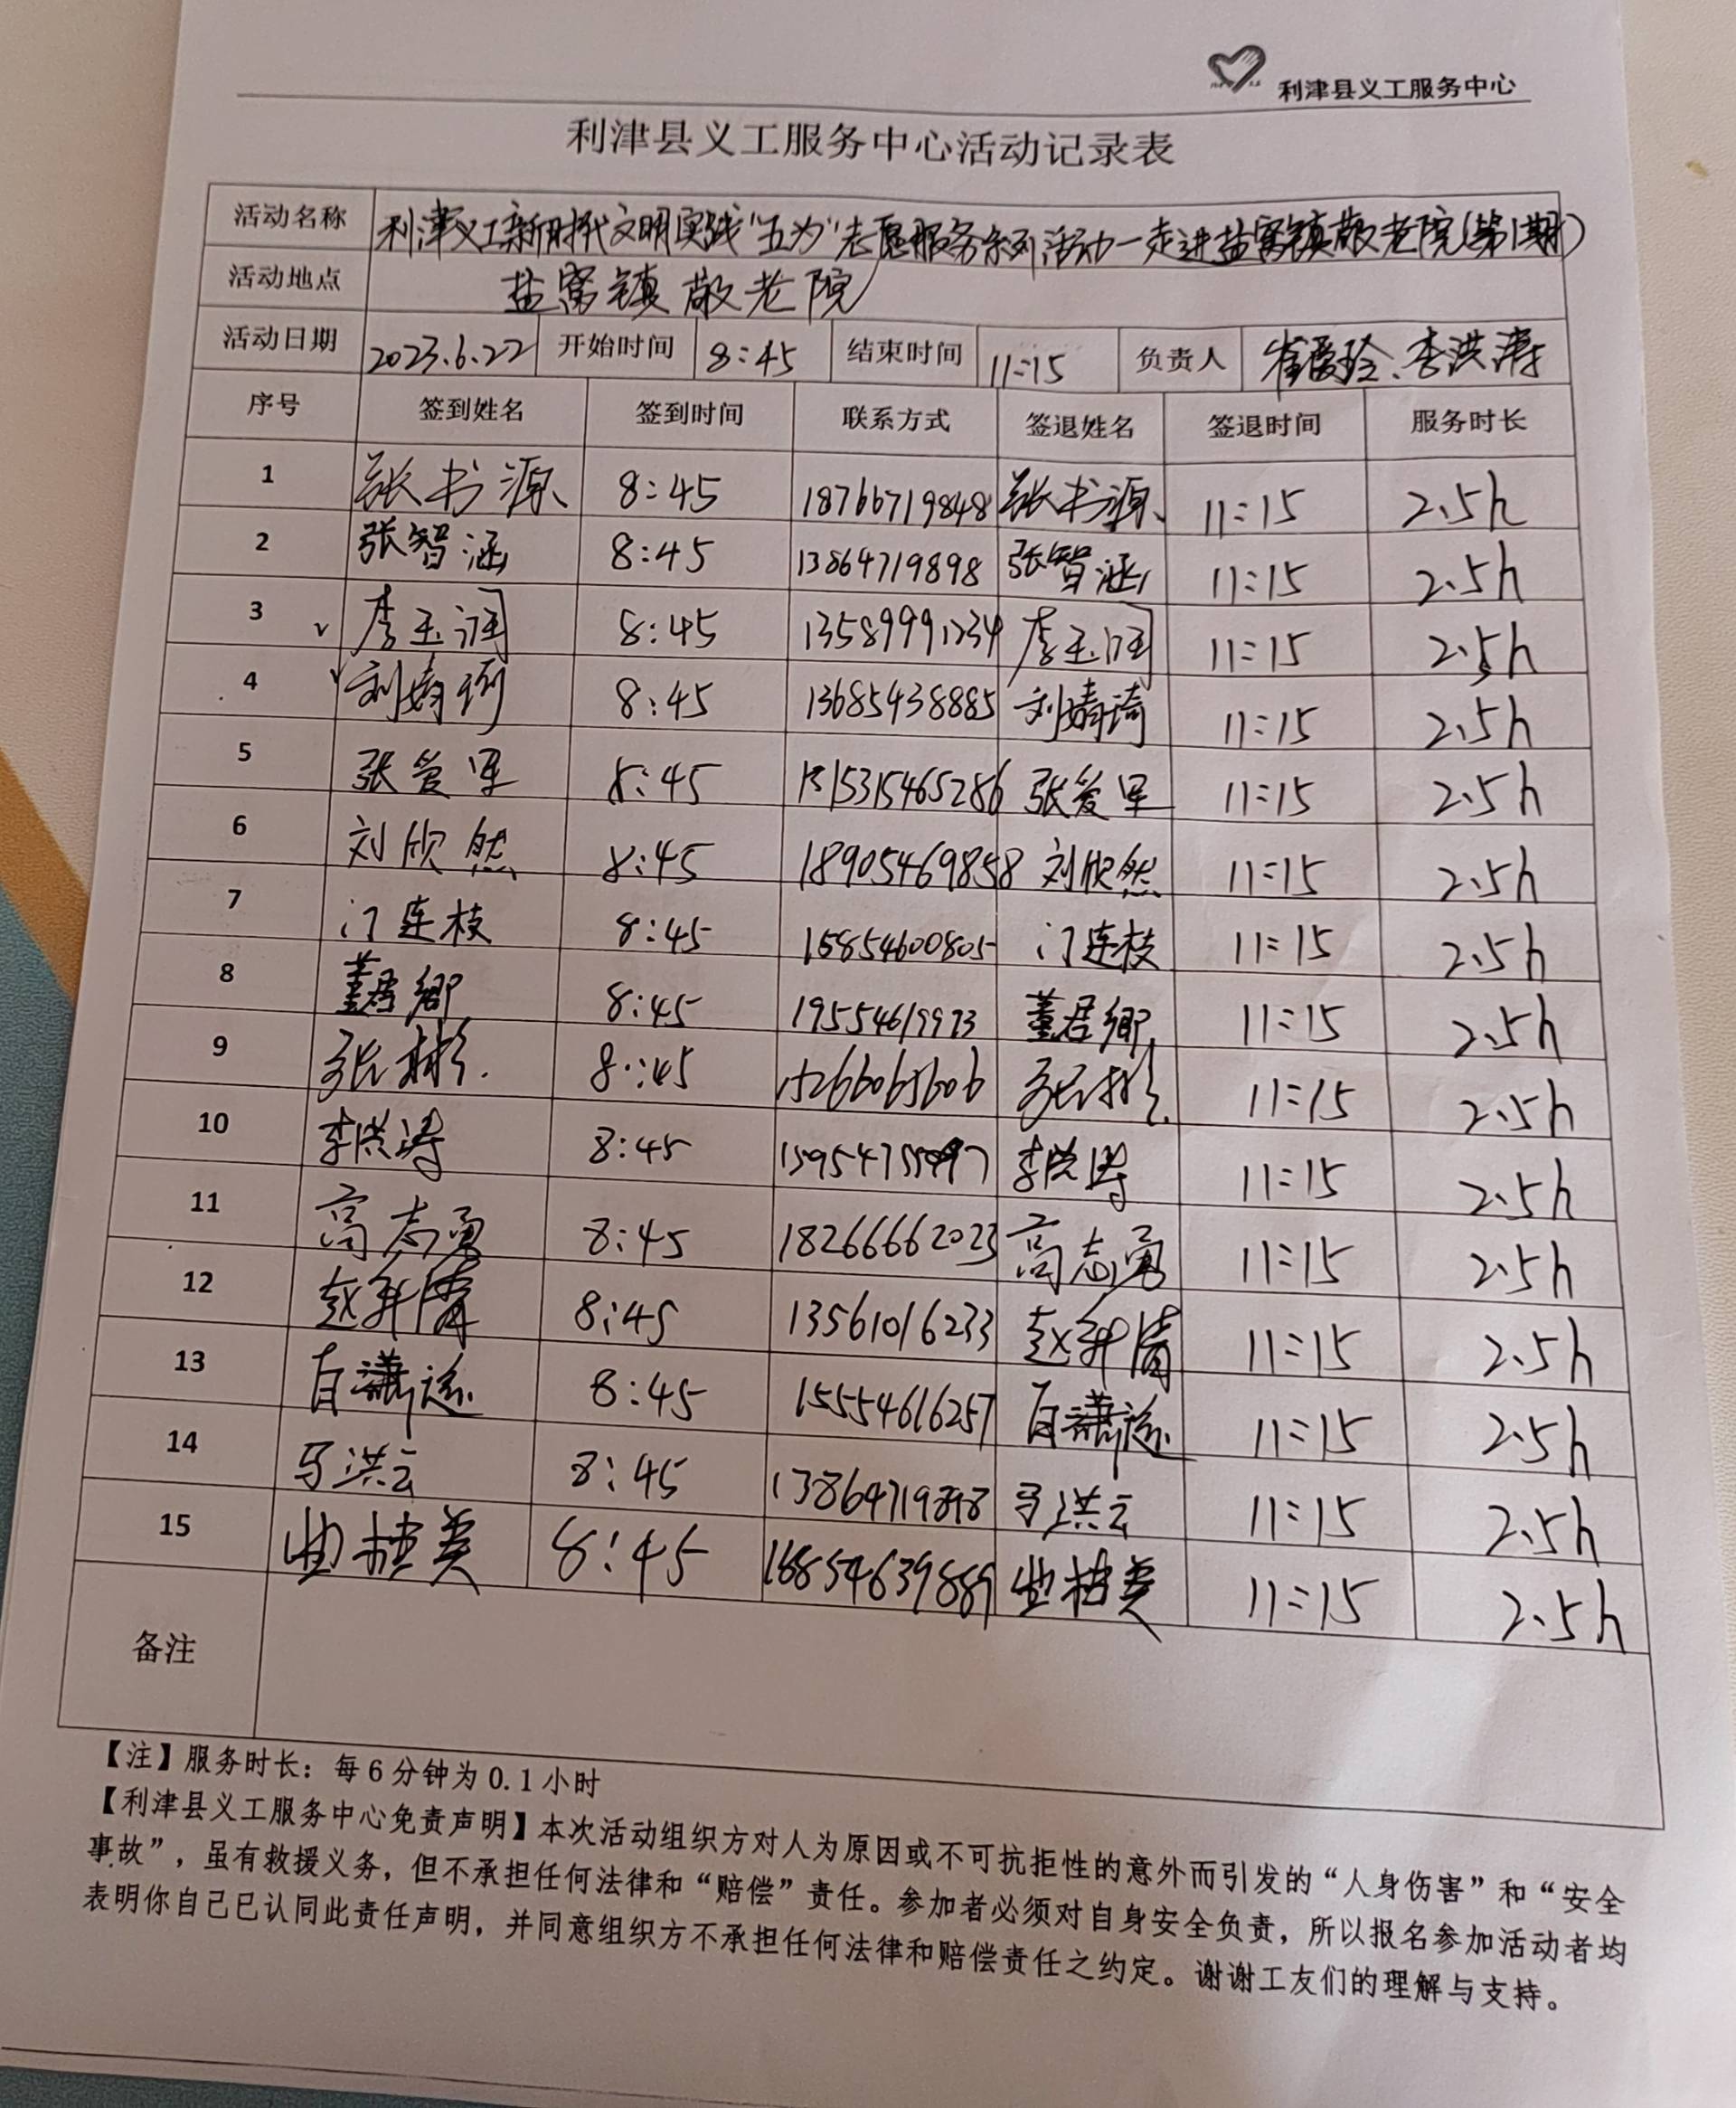 利津县义工服务中心
利津县义工服务中心活动记录表
活动名称 利津义工新时代文明实践“五为”志愿服务系列活动—走进盐窝镇敬老院(第1期)
活动地点 盐窝镇敬老院
活动日期 2023.6.22 开始时间 8:45 结束时间 11:15 负责人 崔爱玲、李洪涛
序号 签到姓名 签到时间 联系方式 签退姓名 签退时间 服务时长
1 张书源 8:45 18766719848 张书源 11:15 2.5h
2 张智涵 8:45 13864719898 张智涵 11:15 2.5h
3 李玉润 8:45 13589991234 李玉润 11:15 2.5h
4 刘婧琦 8:45 13685438885 刘婧琦 11:15 2.5h
5 张爱军 8:45 15315465286 张爱军 11:15 2.5h
6 刘欣然 8:45 18905469858 刘欣然 11:15 2.5h
7 门连枝 8:45 15854600805 门连枝 11:15 2.5h
8 董君卿 8:45 19554619973 董君卿 11:15 2.5h
9 张彬 8:45 15266065606 张彬 11:15 2.5h
10 李洪涛 8:45 李洪涛 11:15 2.5h
11 高志勇 8:45 18266662023 高志勇 11:15 2.5h
12 8:45 13561016233 11:15 2.5h
13 8:45 15554616257 11:15 2.5h
14 马洪云 8:45 13864719898 马洪云 11:15 2.5h
15 曲桂美 8:45 曲桂美 11:15 2.5h
备注
【注】服务时长：每6分钟为0.1小时
【利津县义工服务中心免责声明】本次活动组织方对人为原因或不可抗拒性的意外而引发的“人身伤害”和“安全
事故”，虽有救援义务，但不承担任何法律和“赔偿”责任。参加者必须对自身安全负责，所以报名参加活动者均
表明你自己已认同此责任声明，并同意组织方不承担任何法律和赔偿责任之约定。谢谢工友们的理解与支持。